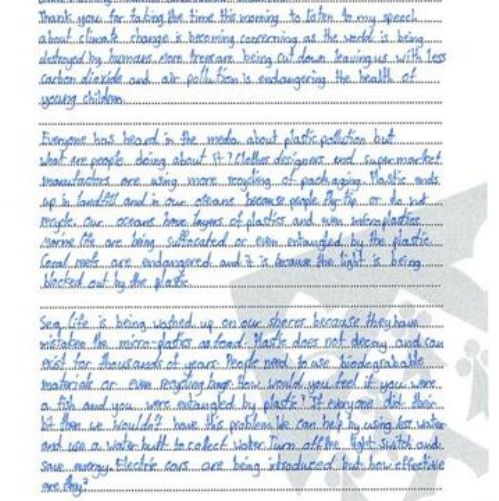 Thank you for taking the time this morning to listen to my speech
about climate change is becoming concerning as the world is being
destroyed by humans. More trees are being cut down leaving us with less
carbon dioxide and air pollution is endangering the health of
young children
Everyone has heard in the media about plastic pollution but
what are people doing about it? Clothes designers and supermarket
manufactors are using more recycling of packaging. Plastic ends
up in landfill and in our oceans because people fly-tip or do not
recycle. Our oceans have layers of plastics and even microplastics
Marine life are being suffocated or even entangled by the plastic.
Coral reefs are endangered and it is because the light is being
blocked out by the plastic
Sea life is being washed up on our shores because they have
mistaken the micro-plastics as food. Plastic does not decay and can
exist for thousands of years. People need to use biodegradable
materials or even recycling bags. How would you feel if you were
a fish and you were entangled by plastic? If everyone did their
bit then we wouldn't have this problem. We can help by using less water
and use a water butt to collect water. Turn off the light switch and
save energy. Electric cars are being introduced but how effective
are they?